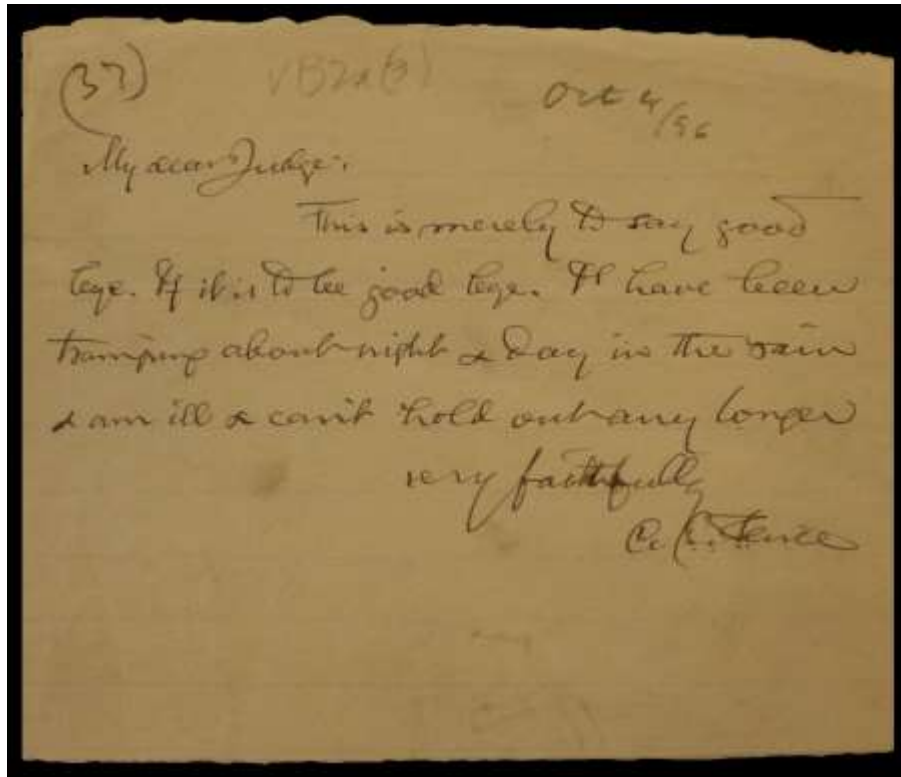 (37) VB2a(3) Oct 4/96
My dear Judge.
This is merely to say good
bye. If it is to be good bye. I have been
tramping about night & day in the rain
& am ill & can't hold out any longer
very faithfully
C. S. Peirce